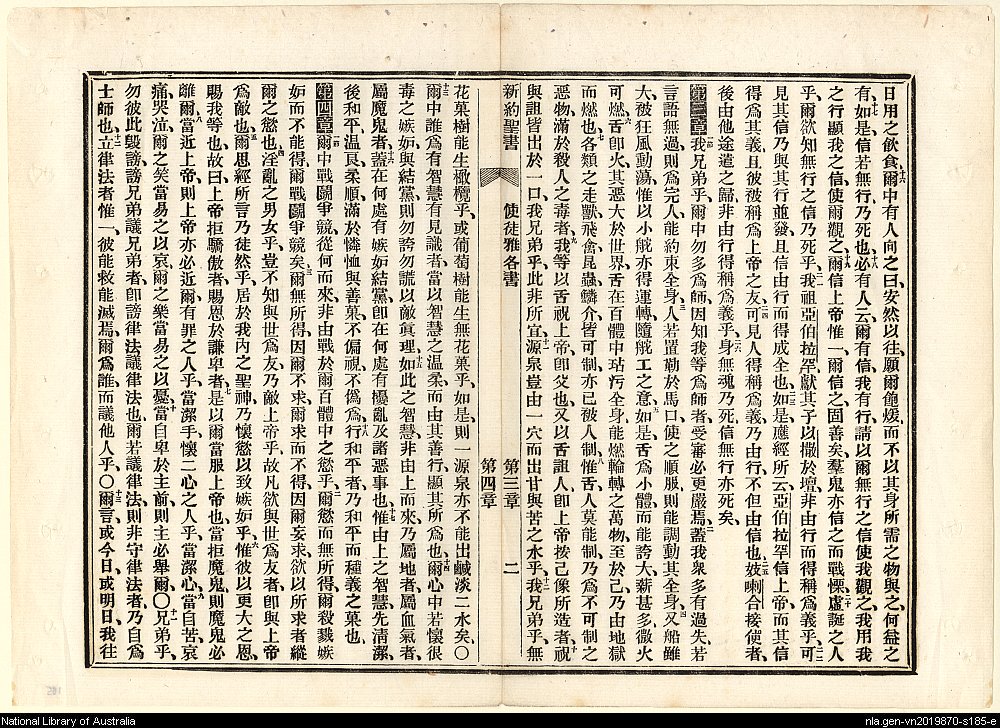 日用之飲食、爾中有人向之曰、安然以往、願爾飽煖、而不以其身所需之物與之、何益之
有、如是、信若無行乃死也、必有人云、爾有信、我有行、請以爾無行之信使我觀之、我用我
之行顯我之信使爾觀之、爾信上帝惟一、爾信之固善矣、羣鬼亦信之而戰慄、虛誕之人
乎、爾欲知無行之信乃死乎、我祖亞伯拉罕獻其子以撒於壇、非由行而得稱爲義乎、可
見其信乃與其行並發、且信由行而得成全也、如是應經所云、亞伯拉罕信上帝、而其信
得爲其義、且彼被稱爲上帝之友、可見人得稱爲義、乃由行、不但由信也、妓喇合接使者、
後由他途遣之歸、非由行得稱爲義乎、身無魂乃死、信無行亦死矣、
第三章 我兄弟乎、爾中勿多爲師、因知我等爲師者、受審必更嚴焉、蓋我衆多有過失、若
言語無過、則爲完人、能約束全身、人若置勒於馬口、使之順服、則能調動其全身、又船雖
大、被狂風動蕩、惟以小舵亦得運轉、隨舵工之意、如是舌爲小體、而能誇大、薪甚多、微火
可燃、舌卽火、其惡大於世界、舌在百體中、玷污全身、能燃輪轉之萬物、至於己乃由地獄
而燃也、各類之走獸飛禽昆蟲鱗介皆可制、亦已被人制、惟舌人莫能制、乃爲不可制之
惡物、滿於殺人之毒者、我等以舌祝上帝、卽父也、又以舌詛人、卽上帝揆己像所造者、祝
與詛皆出於一口、我兄弟乎、此非所宜、源泉豈由一穴而出甘與苦之水乎、我兄弟乎、無
新約聖書 使徒雅各書 第三章 第四章 二
花菓樹能生橄欖乎、或葡萄樹能生無花菓乎、如是則一源泉亦不能出鹹淡二水矣、〇
爾中誰爲有智慧有見識者、當以智慧之温柔而由其善行顯其所爲也、爾心中若懷很
毒之嫉妒與結黨、則勿誇勿謊以敵眞理、如此之智慧、非由上而來、乃屬地者、屬血氣者、
屬魔鬼者、蓋在何處有嫉妒結黨、卽在何處有擾亂及諸惡事也、惟由上之智慧、先清潔、
後和平温良、柔順、滿於憐恤與善菓、不偏視、不僞爲、行和平者、乃和平而種義之菓也、
第四章 爾中戰鬭爭競從何而來、非由戰於爾百體中之慾乎、爾慾而無所得、爾殺戮嫉
妒而不能得、爾戰鬭爭競矣、爾無所得、因爾不求、爾求而不得、因爾妄求、欲以所求者縱
爾之慾也、淫亂之男女乎、豈不知與世爲友乃敵上帝乎、故凡欲與世爲友者、卽與上帝
爲敵也、爾思經所言乃徒然乎、居於我內之聖神、乃懷慾以致嫉妒乎、惟彼以更大之恩
賜我等也、故曰、上帝拒驕傲者、賜恩於謙卑者、是以爾當服上帝也、當拒魔鬼、則魔鬼必
離爾、當近上帝、則上帝亦必近爾、有罪之人乎、當潔手、懷二心之人乎、當潔心、當自苦、哀
痛、哭泣、爾之笑當易之以哀、爾之樂當易之以憂、當自卑於主前、則主必舉爾、〇兄弟乎、
勿彼此毀謗、謗兄弟議兄弟者、卽謗律法議律法也、爾若議律法、則非守律法者、乃自爲
士師也、立律法者惟一、彼能救能滅焉、爾爲誰而議他人乎、〇爾言、或今日、或明日、我往
National Library of Australia
nla.gen-vn2019870-s185-e